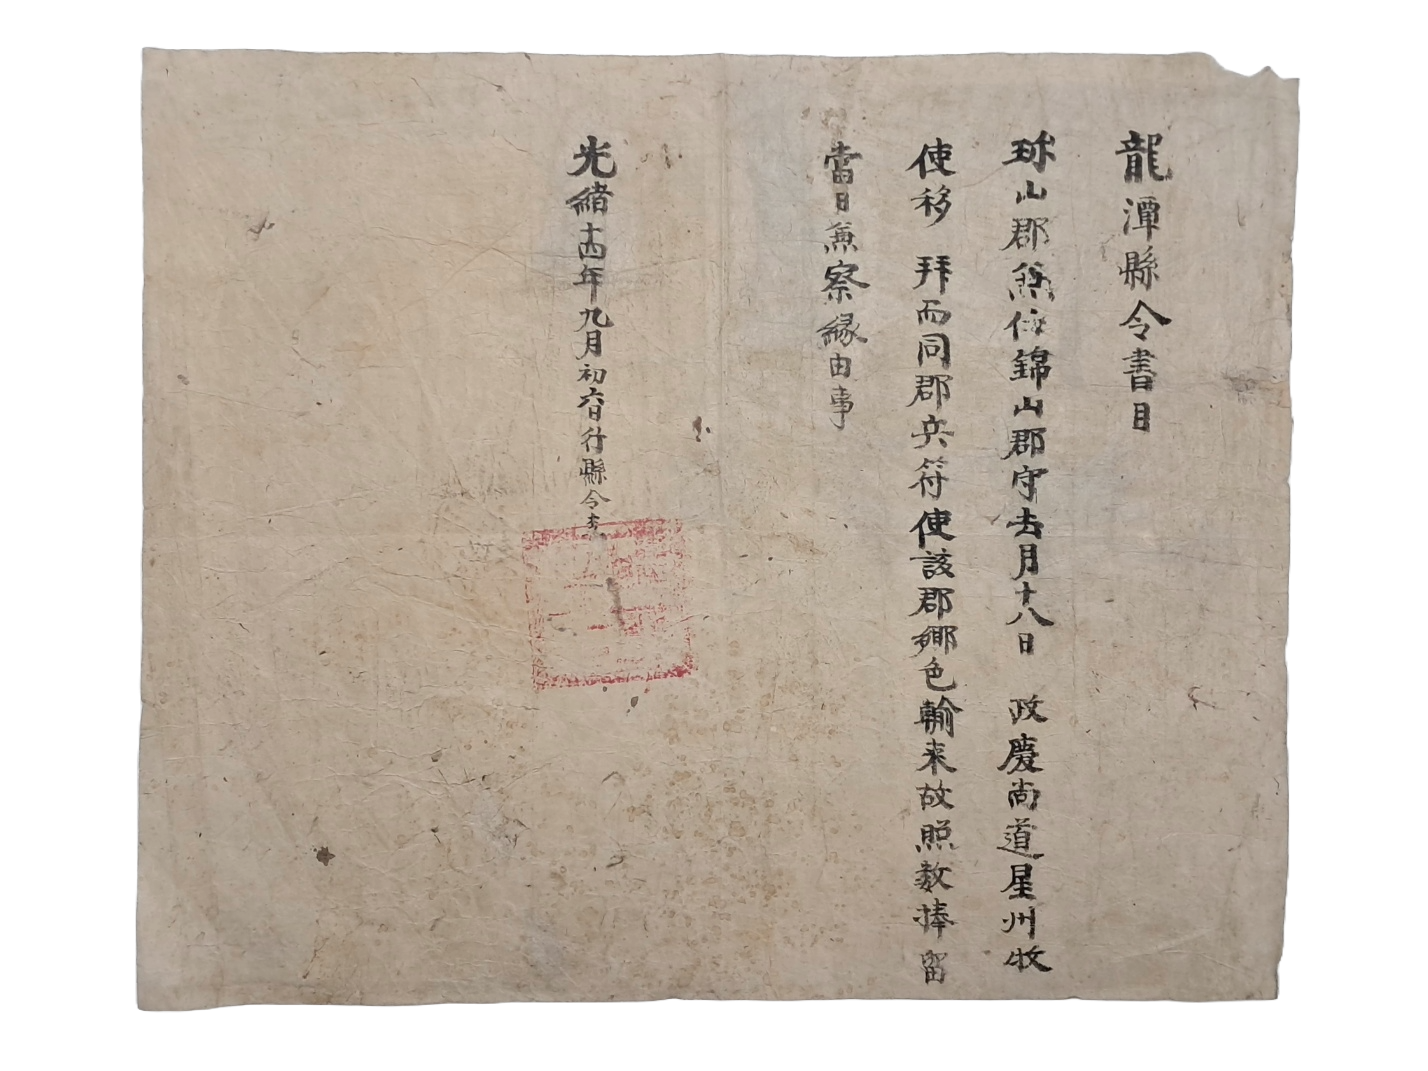 龍潭縣令書目
珎山郡兼任錦山郡守去月十八日 政慶尚道星州牧
使移 拜而同郡兵符使該郡鄉色輸来故照數捧留
當日兼察緣由事
光緒十四年九月初六日行縣令李